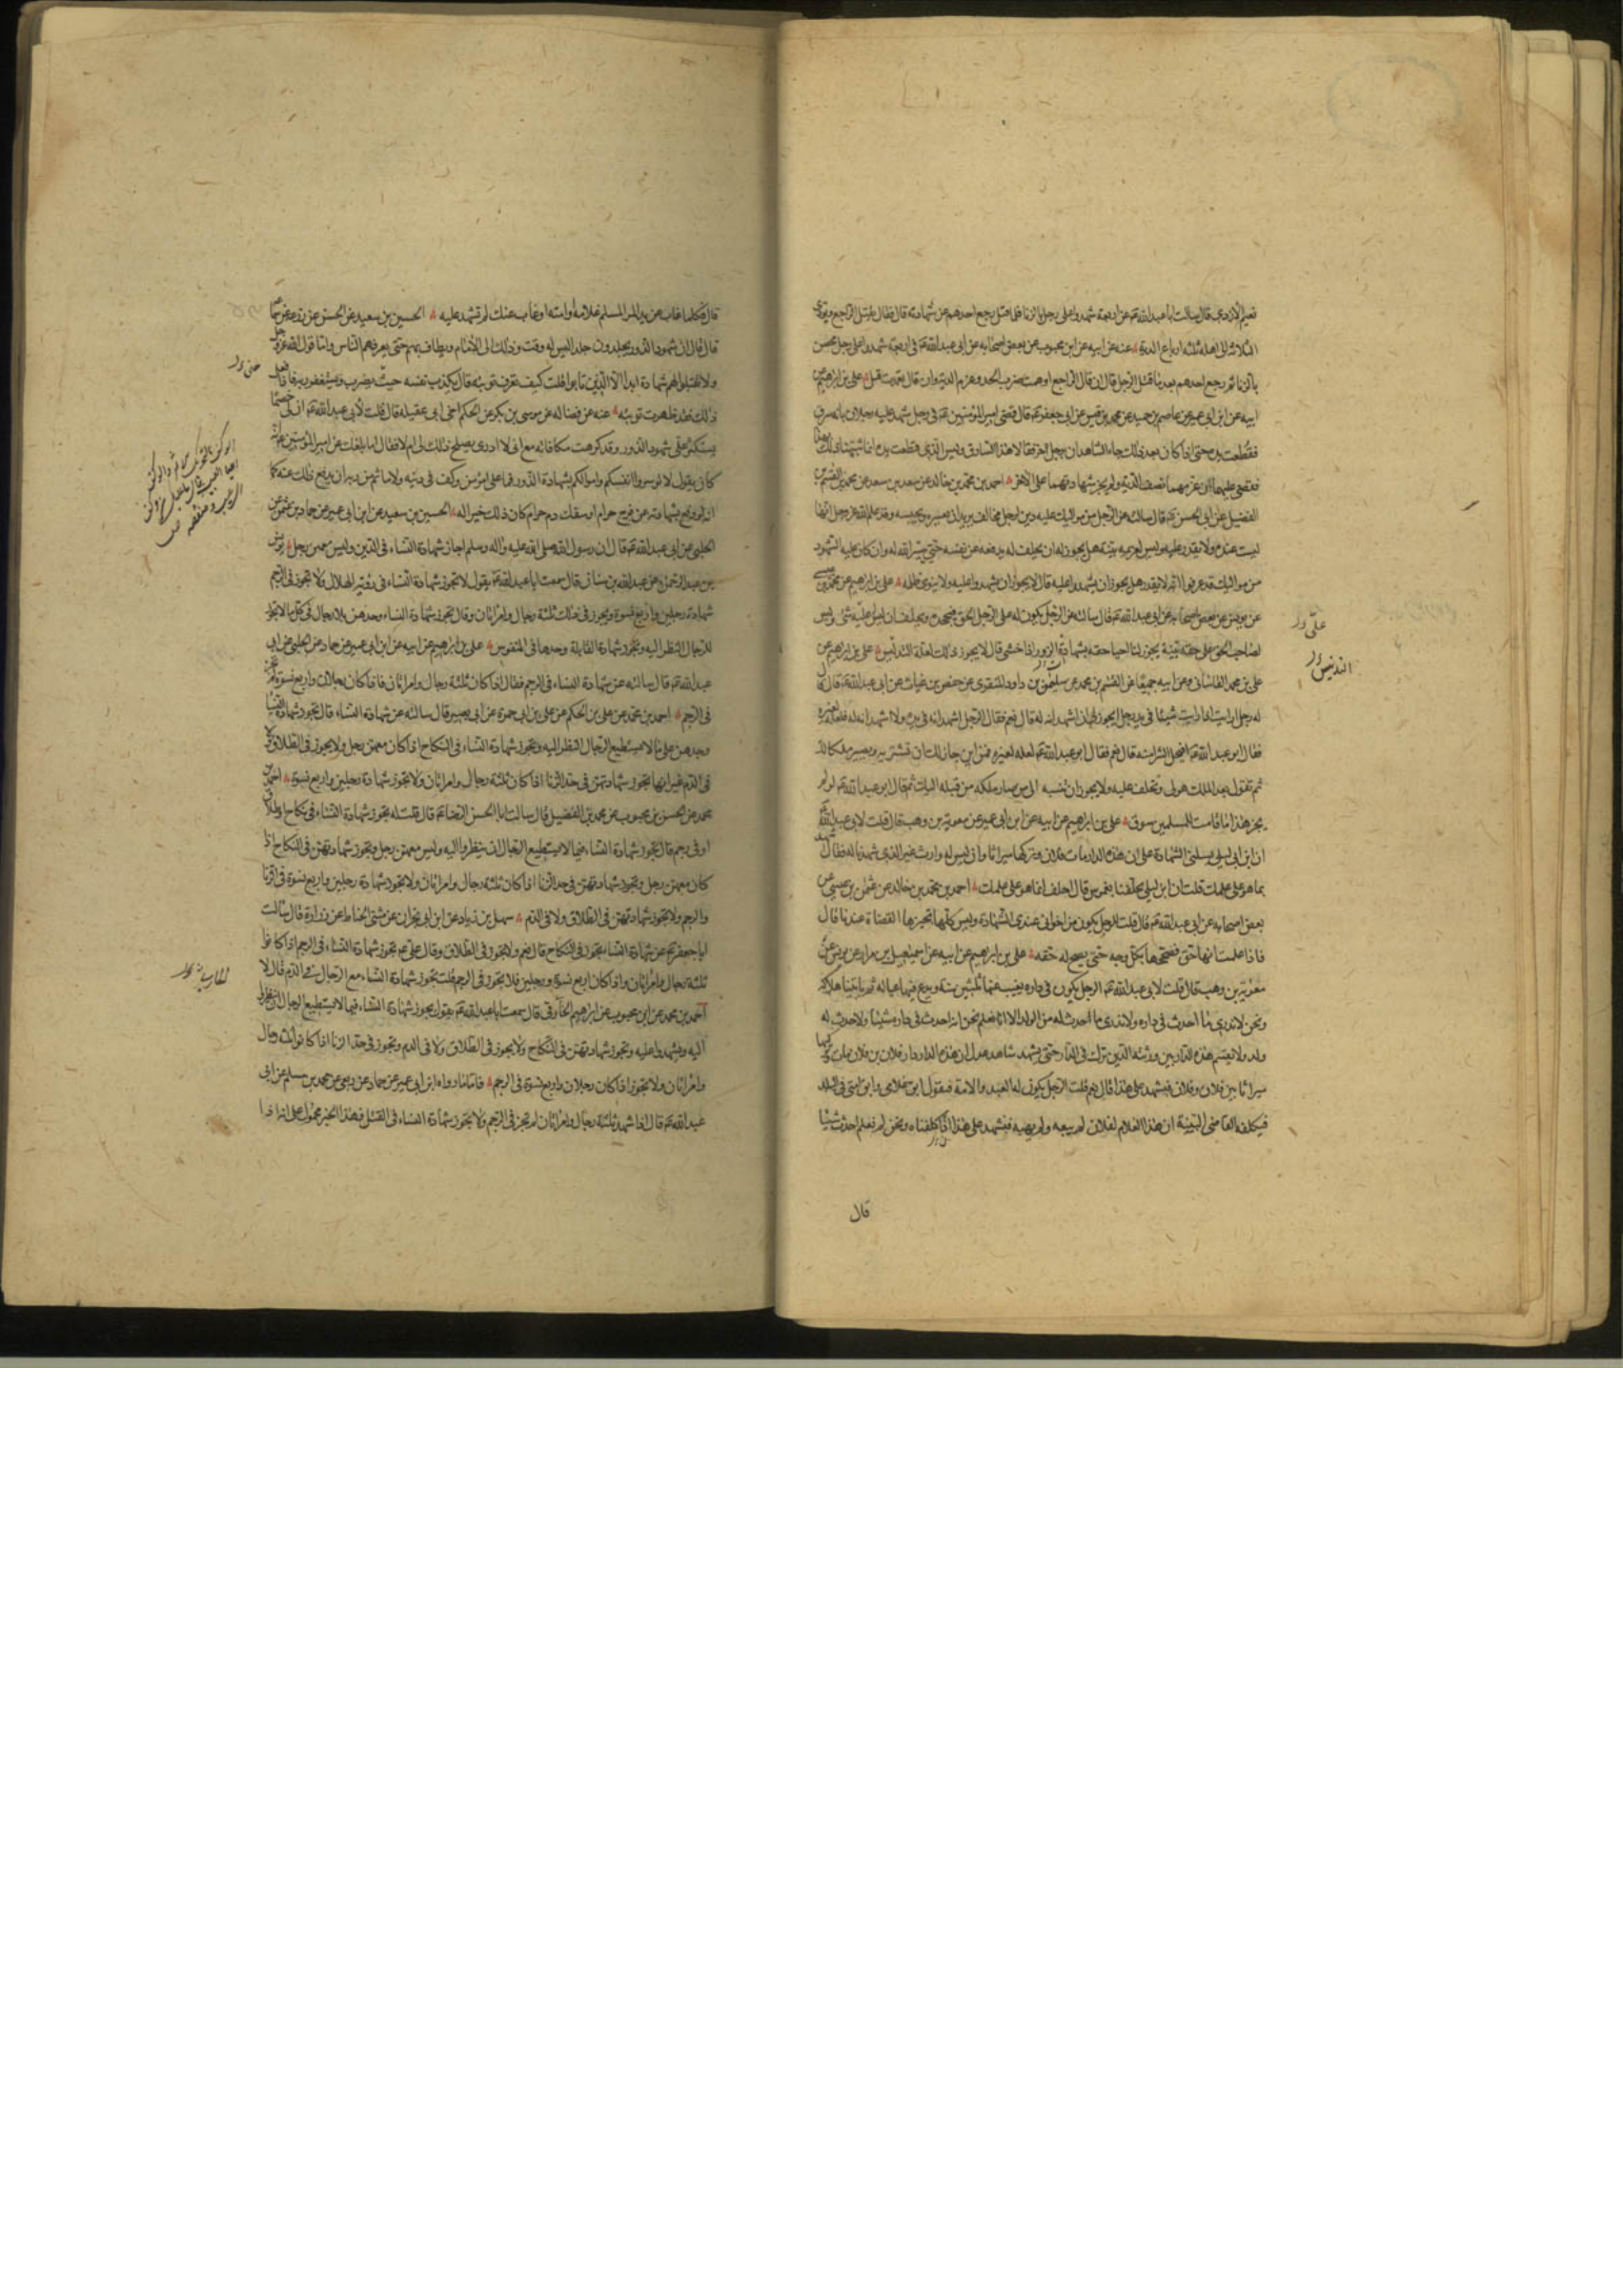 نعيم الأزدي قال سالت ابا عبد الله عم عن اربعة شهدوا على رجل بالزنا فلما قتل رجع احدهم عن شهادته قال فقال يقتل الراجع ويؤدى
الثلاثة الى اهله ثلثة ارباع الدية عنه عن ابيه عن ابن محبوب عن بعض اصحابه عن ابى عبد الله عم فى اربعة شهدوا على رجل محصن
بالزنا ثم رجع احدهم بعد ما قتل الرجل قال ان قال الراجع اوهمت ضرب الحد وغرم الدية وان قال تعمدت قتل على بن ابراهيم عن
ابيه عن ابن ابى عمير عن عاصم بن حميد عن محمد بن قيس عن ابى جعفر عم قال قضى امير المؤمنين عم فى رجل شهد عليه رجلان بانه سرق
فقطعت يده حتى اذا كان بعد ذلك جاء الشاهدان برجل اخر فقالا هذا السارق وليس الذى قطعت يده انما شبهنا ذلك بهذا
فقضى عليهما ان غرمهما نصف الدية ولم يجز شهادتهما على الآخر احمد بن محمد بن خالد عن سعد بن سعد عن محمد بن القسم بن
الفضيل عن ابى الحسن عم قال سالته عن الرجل من مواليك عليه دين لرجل مخالف يريد ان يعسره ويحبسه وقد علم الله عز وجل انها
ليست عنده ولا يقدر عليه وليس لغريمه بينة هل يجوز له ان يحلف له يدفعه عن نفسه حتى ييسر الله له وان كان عليه الشهود
من مواليك قد عرفوا انه لا يقدر هل يجوز ان يشهدوا عليه قال لا يجوز ان يشهدوا عليه ولا ينوى ظلمه على بن ابراهيم عن محمد بن عيسى
عن يونس عن بعض اصحابه عن ابى عبد الله عم قال سالته عن الرجل يكون له على الرجل الحق فيجحده ويحلف ان ليس عليه شئ وليس
لصاحب الحق على حقه بينة يجوز لنا احياء حقه بشهادة الزور اذا خشى قال لا يجوز ذلك لعلة التدليس على بن ابراهيم عن
على بن محمد القاسانى وعن ابيه جميعا عن القسم بن محمد عن سليمن بن داود المنقرى عن حفص بن غياث عن ابى عبد الله عم قال قال
له رجل ارايت اذا رايت شيئا فى يد رجل ايجوز لى ان اشهد انه له قال نعم فقال الرجل اشهد انه فى يده ولا اشهد انه له فلعله لغيره
فقال ابو عبد الله عم افيحل الشراء منه قال نعم فقال ابو عبد الله عم لعله لغيره فمن اين جاز لك ان تشتريه ويصير ملكا لك
ثم تقول بعد الملك هو لى وتحلف عليه ولا يجوز ان تنسبه الى من صار ملكه من قبله اليك ثم قال ابو عبد الله عم لو لم
يجز هذا ما قامت للمسلمين سوق على بن ابراهيم عن ابيه عن ابن ابى عمير عن معوية بن وهب قال قلت لابى عبد الله عم
ان ابن ابى ليلى يسئلنى الشهادة على ان هذه الدار مات فلان وتركها ميراثا وانه ليس له وارث غير الذى شهدنا له فقال اشهد
بما هو على علمك قلت ان ابن ابى ليلى يحلفنا الغموس قال احلف انما هو على علمك احمد بن محمد بن خالد عن عثمن بن عيسى عن
بعض اصحابه عن ابى عبد الله عم قال قلت للرجل يكون من اخوانى عندى الشهادة وليس كلها تجيزها القضاة عندنا قال
فاذا علمت انها حق فصححها بكل وجه حتى يصح له حقه على بن ابراهيم عن ابيه عن اسمعيل بن مرار عن يونس عن
معوية بن وهب قال قلت لابى عبد الله عم الرجل يكون فى داره يغيب عنها ثلثين سنة ويدع فيها عياله ثم ياتينا هلاكه
ونحن لا ندرى ما احدث فى داره ولا ندرى ما احدث له من الولد الا انا لا نعلم نحن انه احدث فى داره شيئا ولا حدث له
ولد ولا تقسم هذه الدار بين ورثته الذين ترك فى الدار حتى يشهد شاهدا عدل ان هذه الدار دار فلان بن فلان مات وتركها
ميراثا بين فلان وفلان فنشهد على هذا قال نعم قلت الرجل يكون له العبد والامة فيقول ابق غلامى وابقت امتى فى البلد
فيكلفه القاضى البينة ان هذا الغلام لفلان لم يبعه ولم يهبه فنشهد على هذا اذا كلفناه ونحن لم نعلم احدث شيئا
على
التدليس
قال
قال فكلما غاب من يد المرء المسلم غلامه او امته او غاب عنك لم تشهد عليه الحسين بن سعيد عن الحسن عن زرعة عن سماعة
قال قال ان شهود الزور يجلدون جلدا ليس له وقت وذلك الى الامام ويطاف بهم حتى يعرفهم الناس واما قول الله عز وجل
ولا تقبلوا لهم شهادة ابدا الا الذين تابوا قلت كيف تعرف توبته قال يكذب نفسه حيث يضرب ويستغفر ربه فاذا فعل
ذلك فقد ظهرت توبته عنه عن فضاله عن موسى بن بكر عن الحكم اخى ابى عقيلة قال قلت لأبى عبد الله عم ان لى خصما
يستكثر على شهود الزور وقد كرهت مكافاته مع انى لا ادرى يصلح ذلك لى ام لا فقال اما بلغك عن امير المؤمنين عم انه
كان يقول لا توسروا انفسكم واموالكم بشهادة الزور فما على امرئ من وكف فى دينه ولا ماثم من ربه ان يدفع ذلك عنه كما
انه لو دفع بشهادته عن فرج حرام او سفك دم حرام كان ذلك خيرا له الحسين بن سعيد عن ابن ابى عمير عن حماد بن عثمن عن
الحلبى عن ابى عبد الله عم قال ان رسول الله صلى الله عليه واله وسلم اجاز شهادة النساء فى الدين وليس معهن رجل يونس
بن عبد الرحمن عن عبد الله بن سنان قال سمعت ابا عبد الله عم يقول لا تجوز شهادة النساء فى رؤية الهلال ولا تجوز فى الرجم
شهادة رجلين واربع نسوة ويجوز فى ذلك ثلثة رجال وامراتان وقال تجوز شهادة النساء وحدهن بلا رجال فى كل ما لا يجوز
للرجال النظر اليه وتجوز شهادة القابلة وحدها فى المنفوس على بن ابراهيم عن ابيه عن ابن ابى عمير عن حماد عن الحلبى عن ابى
عبد الله عم قال سالته عن شهادة النساء فى الرجم فقال اذا كان ثلثة رجال وامراتان فاذا كان رجلان واربع نسوة لم تجز
فى الرجم احمد بن محمد عن على بن الحكم عن على بن ابى حمزة عن ابى بصير قال سالته عن شهادة النساء قال تجوز شهادة النساء
وحدهن على ما لا يستطيع الرجال النظر اليه وتجوز شهادة النساء فى النكاح اذا كان معهن رجل ولا يجوز فى الطلاق ولا
فى الدم غير انها تجوز شهادتهن فى حد الزنا اذا كان ثلثة رجال وامراتان ولا تجوز شهادة رجلين واربع نسوة احمد بن
محمد عن الحسن بن محبوب عن محمد بن الفضيل قال سالت ابا الحسن الرضا عم قال قلت له تجوز شهادة النساء فى نكاح او طلاق
او فى رجم قال تجوز شهادة النساء فيما لا يستطيع الرجال ان ينظروا اليه وليس معهن رجل وتجوز شهادتهن فى النكاح اذا
كان معهن رجل وتجوز شهادتهن فى حد الزنا اذا كان ثلثة رجال وامراتان ولا تجوز شهادة رجلين واربع نسوة فى الزنا
والرجم ولا تجوز شهادتهن فى الطلاق ولا فى الدم سهل بن زياد عن ابن ابى نجران عن مثنى الحناط عن زرارة قال سالت
ابا جعفر عم عن شهادة النساء تجوز فى النكاح قال نعم ولا تجوز فى الطلاق وقال على عم تجوز شهادة النساء فى الرجم اذا كانوا
ثلثة رجال وامراتان واذا كان اربع نسوة ورجلين فلا تجوز فى الرجم قلت تجوز شهادة النساء مع الرجال فى الدم قال لا
احمد بن محمد عن ابن محبوب عن ابراهيم الخارقى قال سمعت ابا عبد الله عم يقول تجوز شهادة النساء فيما لا يستطيع الرجال ان ينظروا
اليه ويشهدوا عليه وتجوز شهادتهن فى النكاح ولا يجوز فى الطلاق ولا فى الدم وتجوز فى حد الزنا اذا كانوا ثلثة رجال
وامراتان ولا تجوز اذا كان رجلان واربع نسوة فى الرجم فاما ما رواه ابن ابى عمير عن حماد عن ربعى عن محمد بن مسلم عن ابى
عبد الله عم قال اذا شهد ثلثة رجال وامراتان لم تجز فى الرجم ولا تجوز شهادة النساء فى القتل فهذا الخبر محمول على انه اذا
حتى